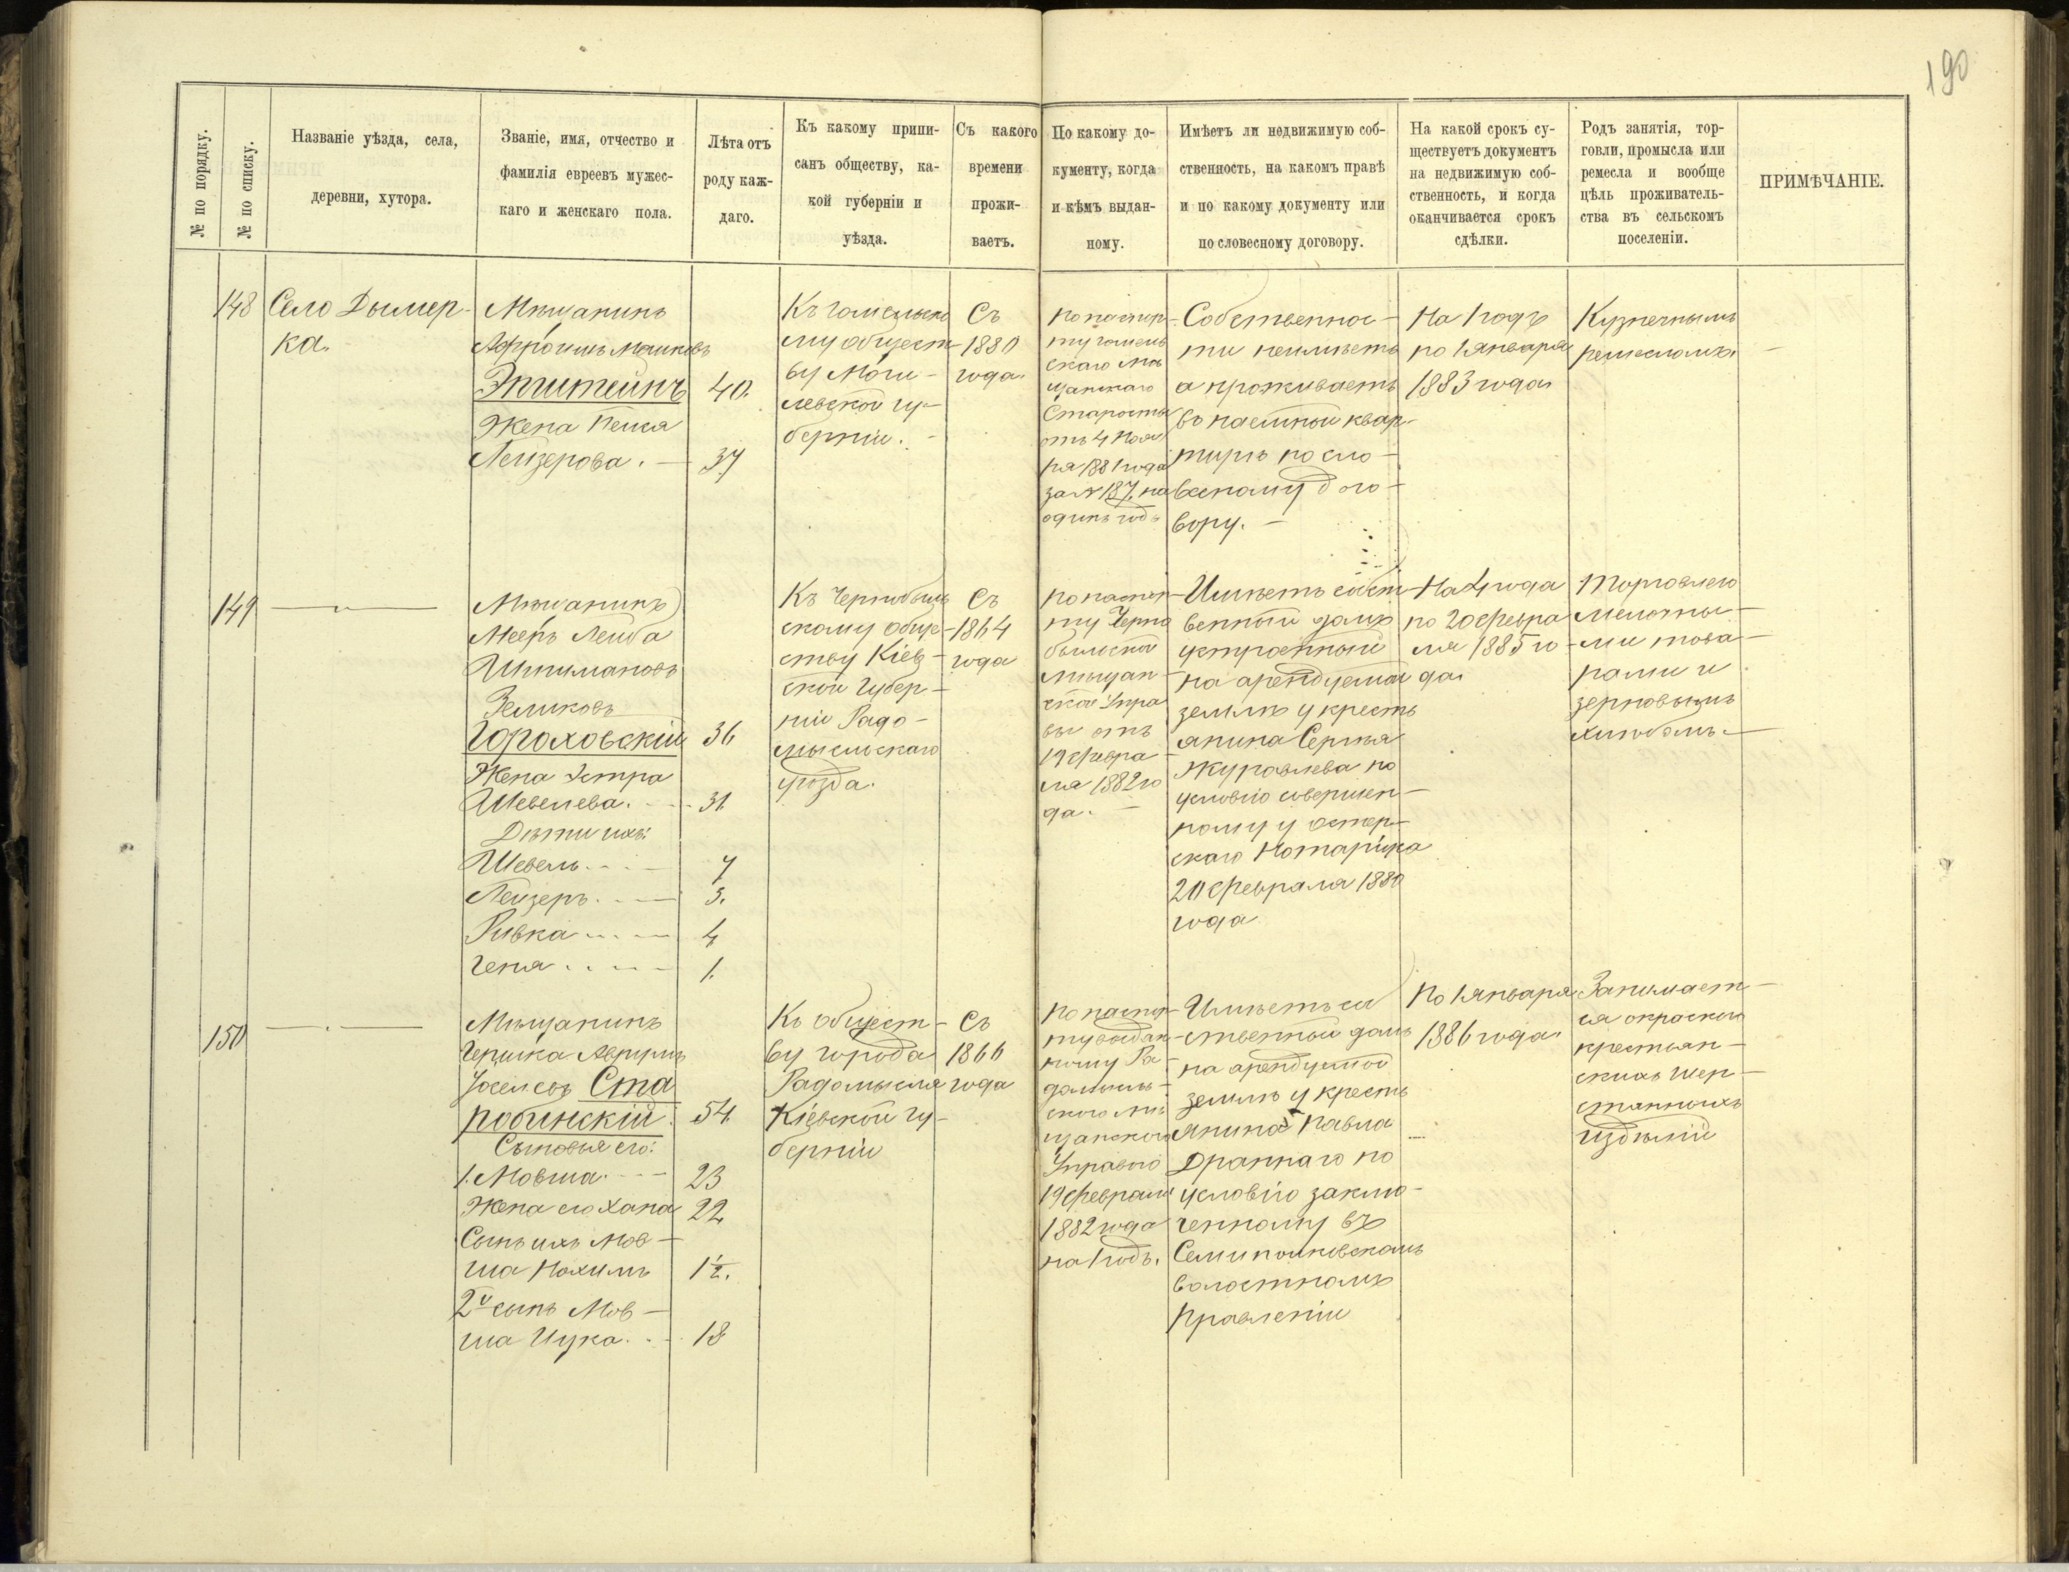 190
№ по порядку.
№ по списку.
Названіе уѣзда, села,
деревни, хутора.
Званіе, имя, отчество и
фамилія евреевъ мужес-
каго и женскаго пола.
Лѣта отъ
роду каж-
даго.
Къ какому припи-
санъ обществу, ка-
кой губерніи и
уѣзда.
Съ какого
времени
прожи-
ваетъ.
По какому до-
кументу, когда
и кѣмъ выдан-
ному.
Имѣетъ ли недвижимую соб-
ственность, на какомъ правѣ
и по какому документу или
по словесному договору.
На какой срокъ су-
ществуетъ документъ
на недвижимую соб-
ственность, и когда
оканчивается срокъ
сдѣлки.
Родъ занятія, тор-
говли, промысла или
ремесла и вообще
цѣль проживатель-
ства въ сельскомъ
поселеніи.
ПРИМѢЧАНІЕ.
148
Село Дымер-
ка.
Мѣщанинъ
Афроимъ Мошковъ
Эпштейнъ 40.
Жена Песся
Лейзерова. — 37
Къ гомельско
му общест-
ву Моги-
левской гу-
берніи.
Съ
1880
года.
по паспор-
ту гомель
скаго мѣ
щанскаго
Старосты
отъ 4 Нояб
ря 1881 года
за № 187 на
одинъ годъ
Собственнос-
ти неимѣетъ
а проживаетъ
въ наемной квар-
тирѣ по сло-
весному дого-
вору. —
На 1 годъ
по 1 января
1883 года
Кузнечнымъ
ремесломъ.
149
Мѣщанинъ
Мееръ Лейба
Шлимановъ
Зеликовъ
Гороховскій 36
Жена Эстра
Шевелева. — 31
Дѣти ихъ:
Шевель — 7
Лейзеръ — 3.
Ривка — 4
Геня — 1.
Къ Чернобыль
скому обще-
ству Кіев-
ской Губер-
ніи Радо-
мысльскаго
уѣзда.
Съ
1864
года
по паспор-
ту Черно
быльской
мѣщан-
ской Упра
вы отъ
19 Февра-
ля 1882 го
да. —
Имѣетъ собст-
венный домъ
устроенный
на арендуемой
землѣ у кресть
янина Сергѣя
Журавлева по
условію совершен-
ному у остер-
скаго Нотаріуса
20 Февраля 1880
года
На 4 года
по 20 февра
ля 1885 го-
да.
Торговлею
мелочны-
ми това-
рами и
зерновымъ
хлѣбомъ. —
150
Мѣщанинъ
Гершка Аврумъ
Іоселевъ Ста
робинскій. 54
Сыновья его:
1. Мовша — 23
Жена его Хана 22
Сынъ ихъ Мов-
ша Нохимъ 1½.
2й сынъ Мов-
ша Ицка. — 18
Къ общест-
ву города
Радомысля
Кіевской гу-
берніи
Съ
1866
года
по паспор-
ту выдан-
ному Ра-
домысль-
скою мѣ
щанскою
Управою
19 Февраля
1882 года
на 1 годъ.
Имѣетъ со
ственный домъ
на арендуемой
землѣ у кресть
янина Павла
Драннаго по
условію заклю-
ченному въ
Семиполковскомъ
волостномъ
Правленіи
По 1 января
1886 года
Занимает-
ся окраскою
крестьян-
скихъ шер-
стянныхъ
издѣлій